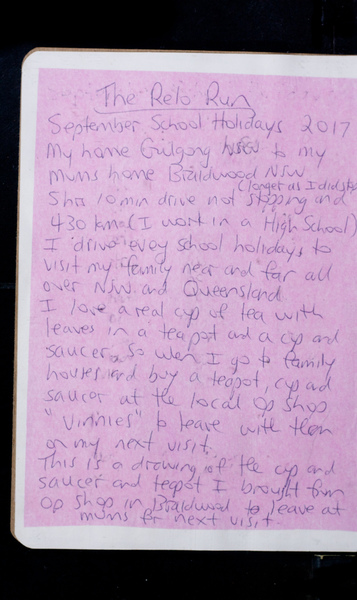 The Relo Run
September School Holidays 2017
My home Gulgong NSW to my
mums home Braidwood NSW
(longer as I did stop
5hrs 10min drive not stopping and
430 kms (I work in a High School)
I drive evey school holidays to
visit my family near and far all
over NSW and Queensland
I love a real cup of tea with
leaves in a teapot and a cup and
saucer, so wen I go to family
houses and buy a teapot, cup ad
saucer at the local op shop
"Vinnies" to leave with them
on my next visit.
This is a drawing of the cup and
saucer and teapot I brought from
op shop in Braidwood to leave at
mums for next visit